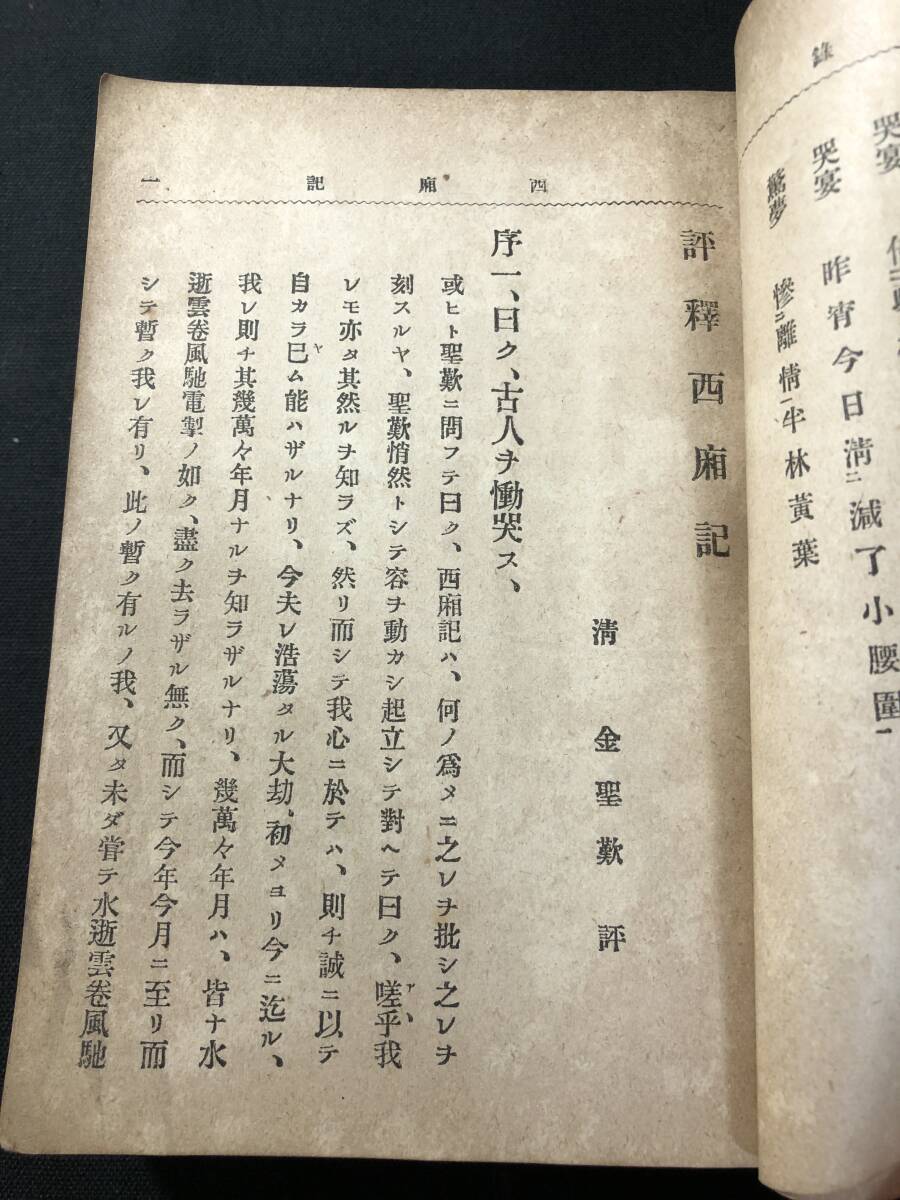 錄
哭宴
哭宴 昨宵今日淸ニ減了小腰圍一
驚夢 慘ニ離情一半林黃葉
西廂記 一
評釋西廂記
淸 金聖歎 評
序一、曰ク、古人ヲ慟哭ス、
或ヒト聖歎ニ問フテ曰ク、西廂記ハ、何ノ爲メニ之レヲ批シ之レヲ
刻スルヤ、聖歎悄然トシテ容ヲ動カシ起立シテ對ヘテ曰ク、嗟乎ア、我
レモ亦タ其然ルヲ知ラズ、然リ而シテ我心ニ於テハ、則チ誠ニ以テ
自カラ已ヤム能ハザルナリ、今夫レ浩蕩タル大劫、初メヨリ今ニ迄ル、
我レ則チ其幾萬々年月ナルヲ知ラザルナリ、幾萬々年月ハ、皆ナ水
逝雲卷風馳電掣ノ如ク、盡ク去ラザル無ク、而シテ今年今月ニ至リ而
シテ暫ク我レ有リ、此ノ暫ク有ルノ我、又タ未ダ甞テ水逝雲卷風馳